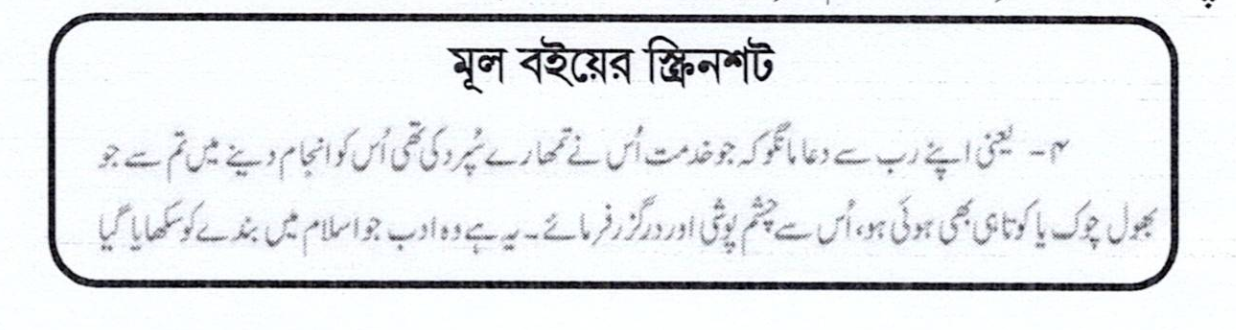 মূল বইয়ের স্ক্রিনশট
۴- یعنی اپنے رب سے دعا مانگو کہ جو خدمت اُس نے تمھارے سُپرد کی تھی اُس کو انجام دینے میں تم سے جو
بھول چوک یا کوتاہی بھی ہوئی ہو، اُس سے چشم پوشی اور درگزر فرمائے۔ یہ ہے وہ ادب جو اسلام میں بندے کو سکھایا گیا